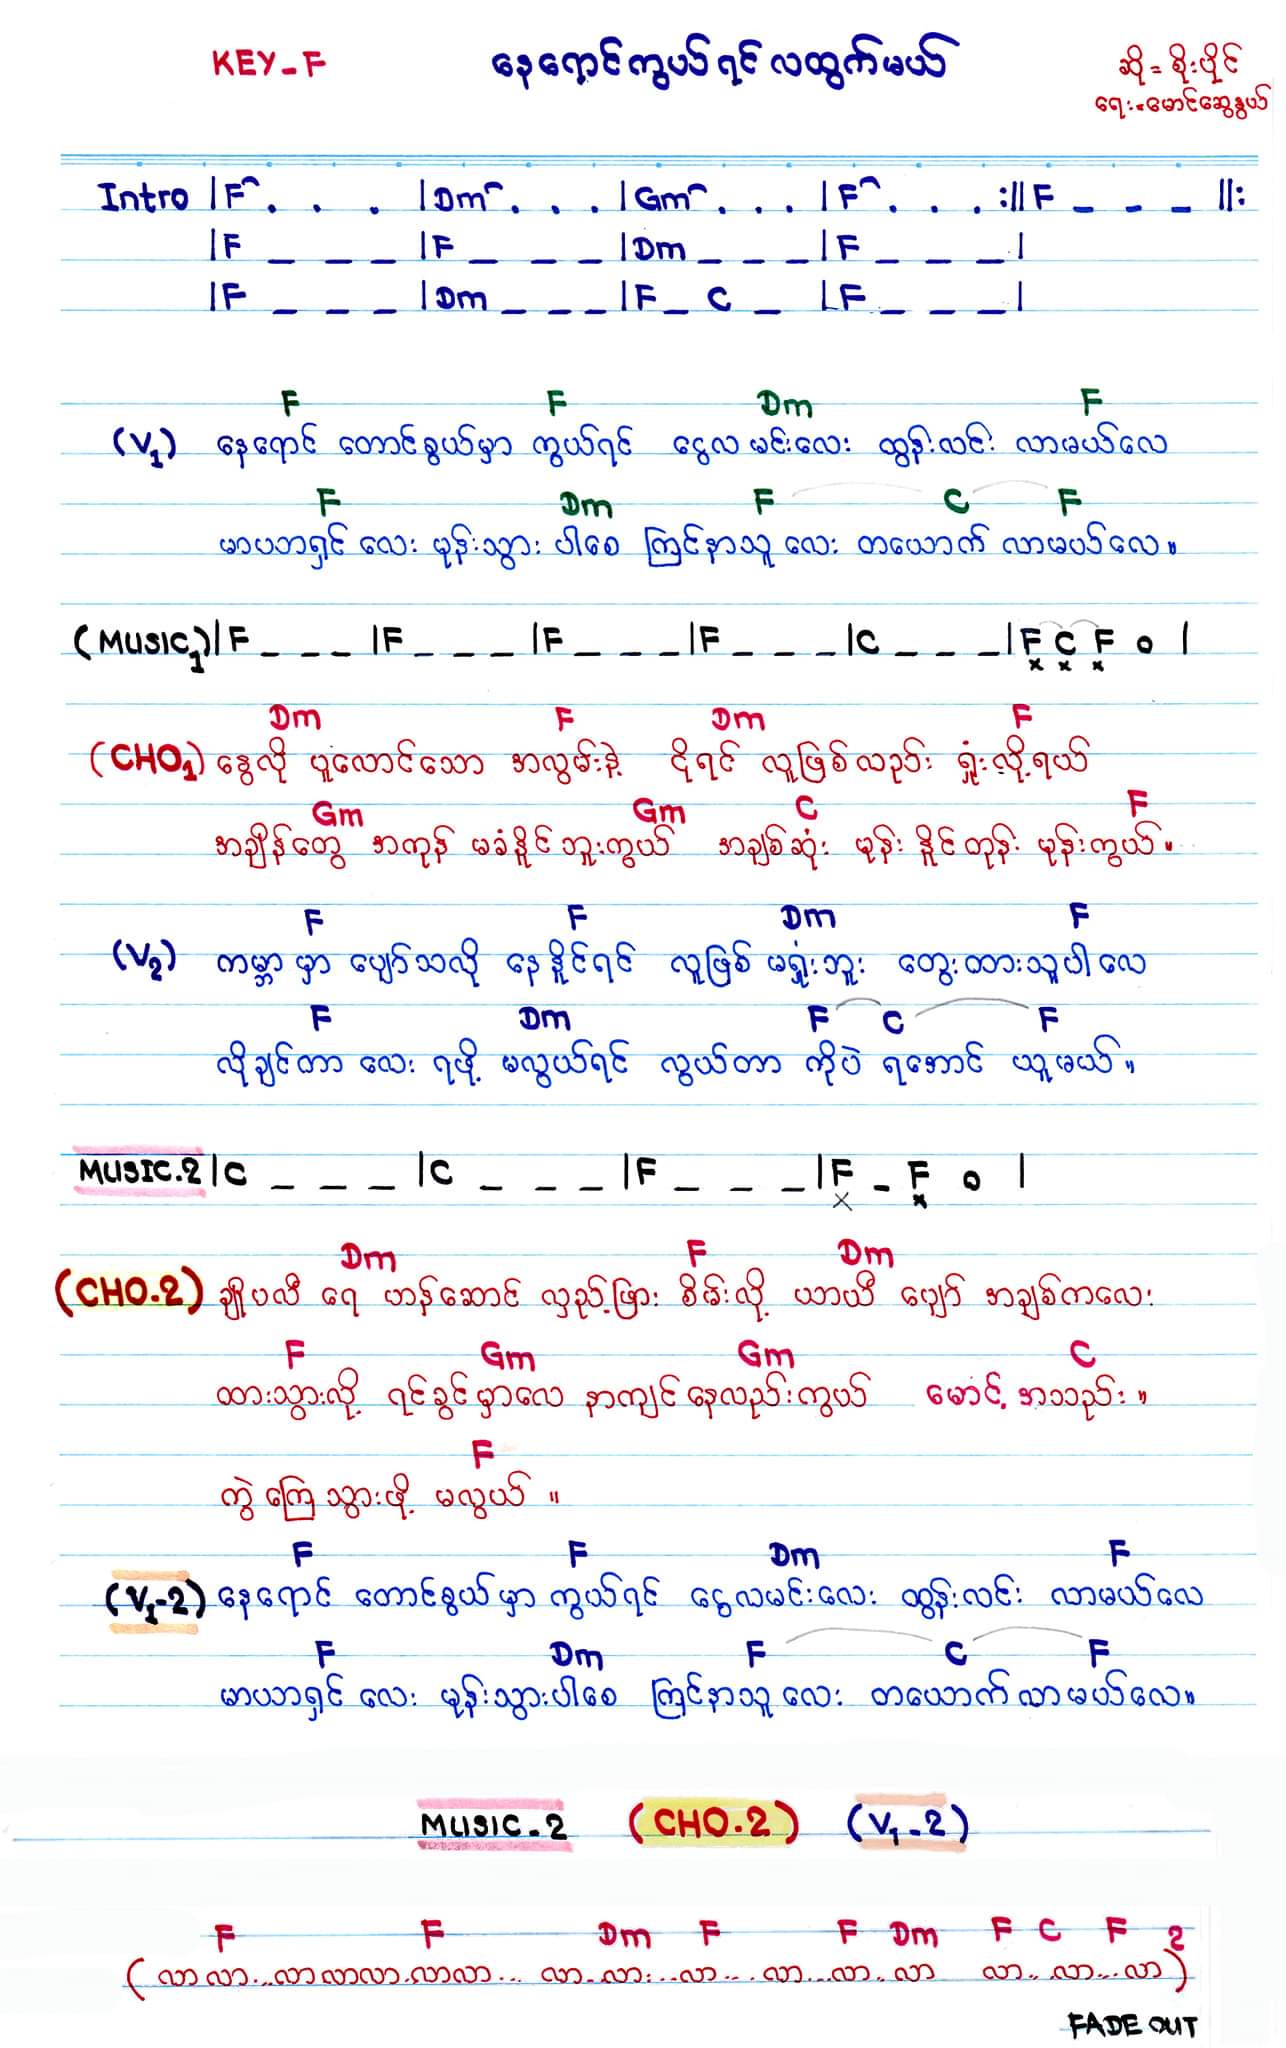 KEY-F နေရောင်ကွယ်ရင် လထွက်မယ် ဆို = စိုးပိုင်
ရေး = မောင်ဆွေနွယ်
Intro |F^ . . . |Dm^ . . . |Gm^ . . . |F^ . . . :||F _ _ _ ||:
|F _ _ _ |F _ _ _ |Dm _ _ _ |F _ _ _ |
|F _ _ _ |Dm _ _ _ |F _ C _ |F _ _ _ |
F F Dm F
(V1) နေရောင် တောင်စွယ်မှာ ကွယ်ရင် ငွေလ မင်းလေး ထွန်းလင်း လာမယ်လေ
F Dm F C F
မာယာရှင် လေး မုန်းသွား ပါစေ ကြင်နာသူ လေး တယောက် လာမယ်လေ။
(MUSIC1) |F _ _ _ |F _ _ _ |F _ _ _ |F _ _ _ |C _ _ _ |F C F o |
x x x
Dm F Dm F
(CHO1) နွေလို ပူလောင်သော အလွမ်းနဲ့ ငိုရင် လူဖြစ်လည်း ရှုံးလို့ရယ်
Gm Gm C F
အချိန်တွေ အကုန် မခံနိုင်ဘူးကွယ် အချစ်ဆုံး မုန်း နိူင်တုန်း မုန်းကွယ်။
F F Dm F
(V2) ကမ္ဘာ မှာ ပျော်သလို နေနိူင်ရင် လူဖြစ် မရှုံးဘူး တွေးထားသူပါ လေ
F Dm F C F
လိုချင်တာ လေး ရဖို့ မလွယ်ရင် လွယ်တာ ကိုပဲ ရအောင် ယူမယ်။
MUSIC.2 |C _ _ _ |C _ _ _ |F _ _ _ |F - F o |
x x
Dm F Dm
(CHO.2) ချိုပလီ ရေ ဟန်ဆောင် လှည့်ဖြား စိမ်းလို့ ယာယီ ပျော် အချစ်ကလေး
F Gm Gm C
ထားသွားလို့ ရင်ခွင်မှာလေ နာကျင်နေလည်းကွယ် မောင့် အသည်း။
F
ကွဲကြေသွားဖို့ မလွယ်။
F F Dm F
(V1-2) နေရောင် တောင်စွယ်မှာ ကွယ်ရင် ငွေလမင်းလေး ထွန်းလင်း လာမယ်လေ
F Dm F C F
မာယာရှင် လေး မုန်းသွားပါစေ ကြင်နာသူ လေး တယောက် လာမယ်လေ။
MUSIC-2 (CHO.2) (V1-2)
F F Dm F F Dm F C F 2
( လာ လာ...လာလာလာ.လာလာ... လာ..လာ...လာ... လာ...လာ..လာ လာ..လာ...လာ )
FADE OUT